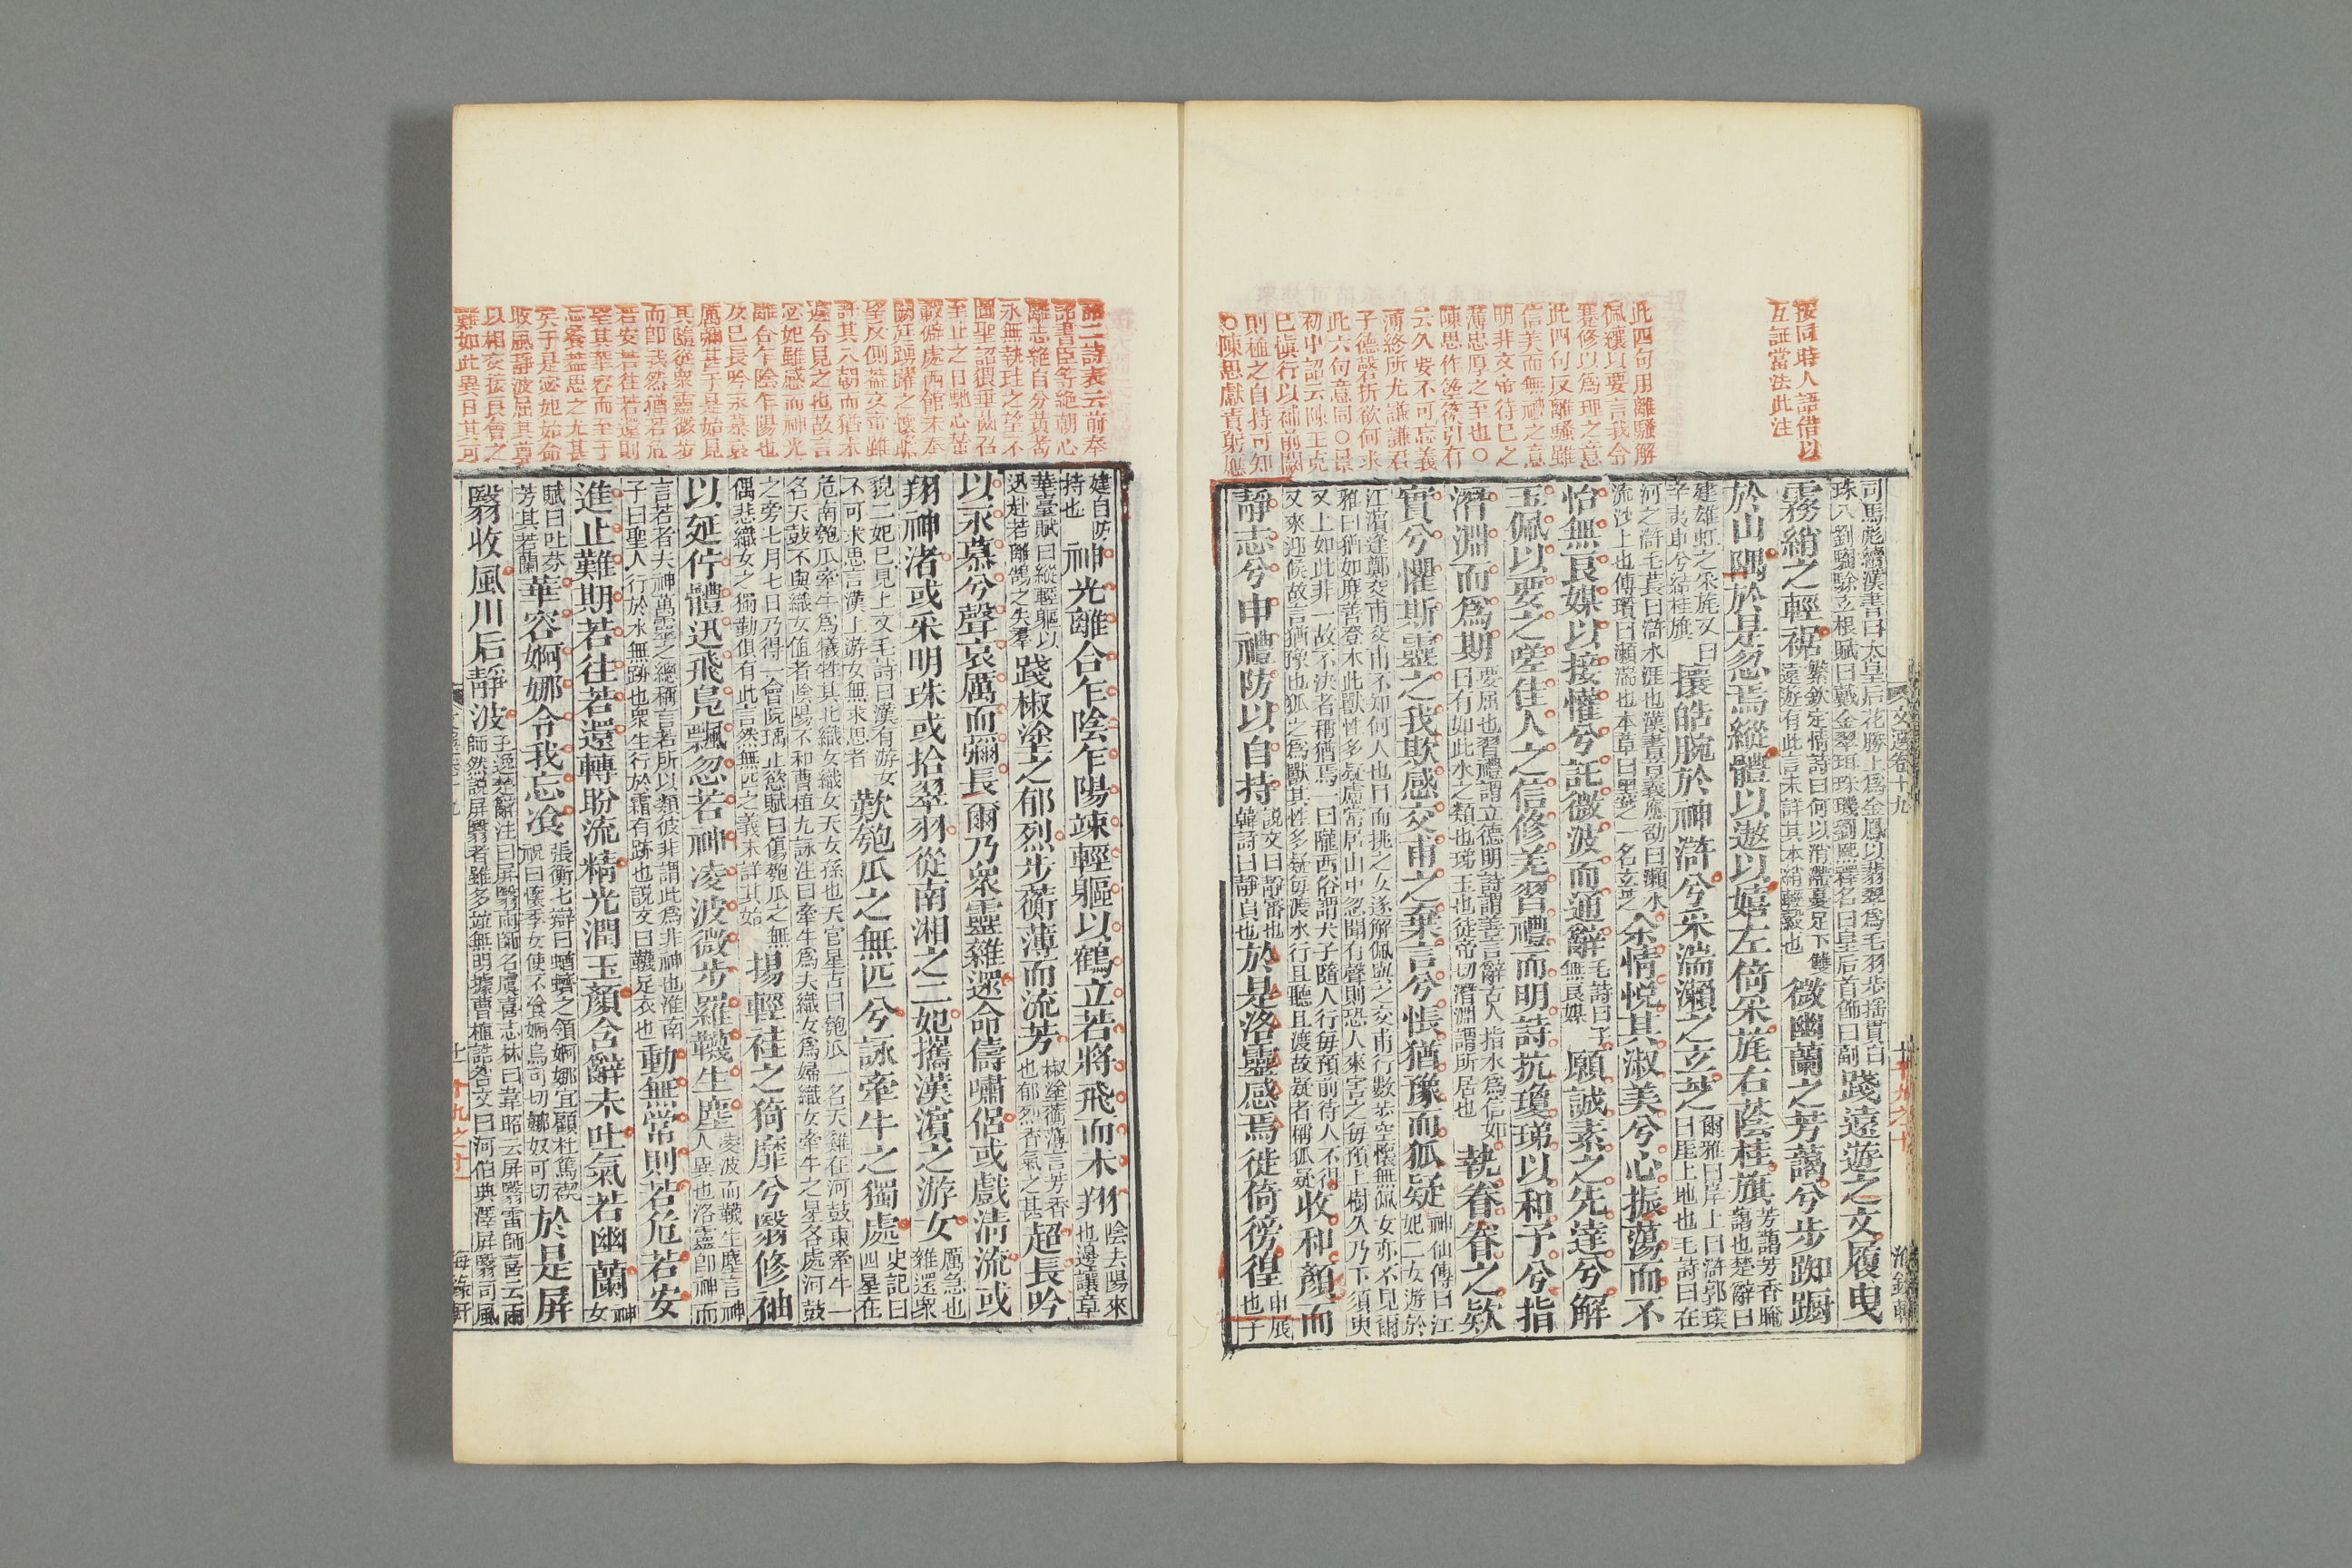 按同時人語借以
互証當法此注
此四句用離騷解
佩纕以要言我令
蹇修以爲理之意
此四句反離騷雖
信美而無禮之意
明非文帝待已之
薄忠厚之至也○
陳思作箜篌引有
云久要不可忘義
薄終所尤謙謙君
子德磬折欲何求
此六句意同○景
初中詔云陳王克
已愼行以補前闕
則極之自持可知
○陳思獻責躬應
文選卷十九
司馬彪續漢書曰太皇后花勝上爲金鳳以翡翠爲毛羽步搖貫白
珠八劉騊駼玄根賦曰戴金翠珥珠璣劉熙釋名曰皇后首飾曰副
踐遠遊之文履曳
霧綃之輕裾
繁欽定情詩曰何以消滯憂足下雙
遠遊有此言未詳其本綃輕縠也
微幽蘭之芳藹兮步踟蹰
於山隅於是忽焉縱體以遨以嬉左倚采旄右蔭桂旗
芳藹芳香晻
藹也楚辭曰
建雄虹之采旄又曰
辛夷車兮結桂旗
攘皓腕於神滸兮采湍瀨之玄芝
爾雅曰岸上曰滸郭璞
曰厓上地也毛詩曰在
河之滸毛萇曰滸水涯也漢書音義應劭曰瀨水
流沙上也傅瓚曰瀨湍也本草曰黑芝一名玄芝
余情悅其淑美兮心振蕩而不
怡無良媒以接懽兮託微波而通辭
毛詩曰子
無良媒
願誠素之先達兮解
玉佩以要之嗟佳人之信修羌習禮而明詩抗瓊珶以和予兮指
潛淵而爲期
要屈也習禮謂立德明詩謂善言辭古人指水爲信如
曰有如此水之類也珶玉也徒帝切潛淵謂所居也
執眷眷之款
實兮懼斯靈之我欺感交甫之棄言兮悵猶豫而狐疑
神仙傳曰江
妃二女遊於
江濱逢鄭交甫交甫不知何人也目而挑之女遂解佩與之交甫行數步空懷無佩女亦不見爾
雅曰猶如麂善登木此獸性多疑慮常居山中忽聞有聲則恐人來害之每預上樹久乃下須臾
又上如此非一故不決者稱猶焉一曰隴西俗謂犬子隨人行每預前待人不得
又來迎候故言猶豫也狐之爲獸其性多疑每渡水行且聽且渡故疑者稱狐疑
收和顏而
靜志兮申禮防以自持
說文曰靜審也
韓詩曰靜貞也
於是洛靈感焉徙倚徬徨
申展
也子
詔二詩表云前奉
詔書臣等絶朝心
離志絶自分黃耇
永無執珪之望不
圖聖詔猥垂齒召
至止之日馳心輦
轂僻處西館未奉
闕廷踴躍之懷瞻
望反側蓋文帝雖
許其入朝而猶未
遽令見之也故言
宓妃雖感而神光
離合乍陰乍陽也
及已長吟永慕哀
厲彌甚于是始見
其隨從衆靈微步
而卽我然猶若危
若安若往若還則
望其華容而至于
忘餐葢思之尤甚
矣于是宓妃始命
收風靜波屈其尊
以相交接良會之
難如此異日其可
建自防
持也
神光離合乍陰乍陽竦輕軀以鶴立若將飛而未翔
陰去陽來
也邊讓章
華臺賦曰縱輕軀以
迅赴若離鵠之失羣
踐椒塗之郁烈步蘅薄而流芳
椒塗蘅薄言芳香
也郁烈香氣之甚
超長吟
以永慕兮聲哀厲而彌長爾乃衆靈雜遝命儔嘯侶或戲淸流或
翔神渚或采明珠或拾翠羽從南湘之二妃攜漢濱之游女
厲急也
雜遝衆
貌二妃已見上文毛詩曰漢有游女
不可求思言漢上游女無求思者
歎匏瓜之無匹兮詠牽牛之獨處
史記曰
四星在
危南匏瓜牽牛爲犧牲其北織女織女天女孫也天官星占曰匏瓜一名天雞在河鼓東牽牛一
名天鼓不與織女値者陰陽不和曹植九詠注曰牽牛爲夫織女爲婦織女牽牛之星各處河鼓
之旁七月七日乃得一會阮瑀止慾賦曰傷匏瓜之無
偶悲織女之獨勤俱有此言然無匹之義未詳其始
揚輕袿之猗靡兮翳修袖
以延佇體迅飛鳧飄忽若神淩波微步羅韈生塵
淩波而韈生塵言神
人異也洛靈卽神而
言若者夫神萬靈之總稱言若所以類彼非謂此爲非神也淮南
子曰聖人行於水無跡也衆生行於霜有跡也說文曰韈足衣也
動無常則若危若安
進止難期若往若還轉眄流精光潤玉顏含辭未吐氣若幽蘭
神
女
賦曰吐芬
芳其若蘭
華容婀娜令我忘飡
張衡七辯曰蝤蠐之領婀娜宜顧杜篤禊
祝曰懷季女使不飡婀烏可切娜奴可切
於是屏
翳收風川后靜波
王逸楚辭注曰屏翳雨師名虞喜志林曰韋昭云屏翳雷師喜云雨
師然說屏翳者雖多竝無明據曹植詰咎文曰河伯典澤屏翳司風
海錄軒